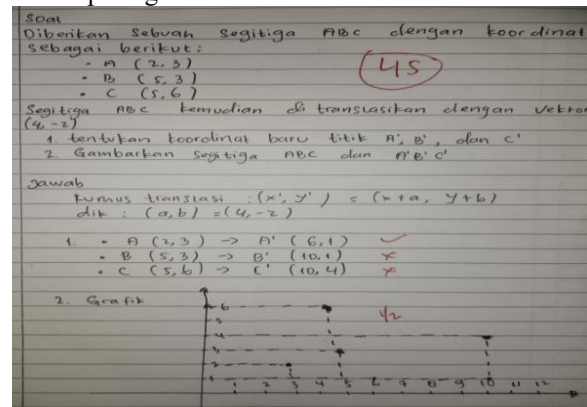 Soal
Diberikan sebuah segitiga ABC dengan koordinat
sebagai berikut :
• A (2, 3)
• B (5, 3)
• C (5, 6)
45
Segitiga ABC kemudian di translasikan dengan vektor
(4, -2)
1. tentukan koordinat baru titik A', B', dan C'
2. Gambarkan segitiga ABC dan A'B'C'
Jawab
Rumus translasi : (x', y') = (x+a, y+b)
dik : (a, b) = (4, -2)
1. • A (2, 3) -> A' (6, 1) ✓
• B (5, 3) -> B' (10, 1) ×
• C (5, 6) -> C' (10, 4) ×
2. Grafik
1/2
6
5
4
3
2
1
1 2 3 4 5 6 7 8 9 10 11 12